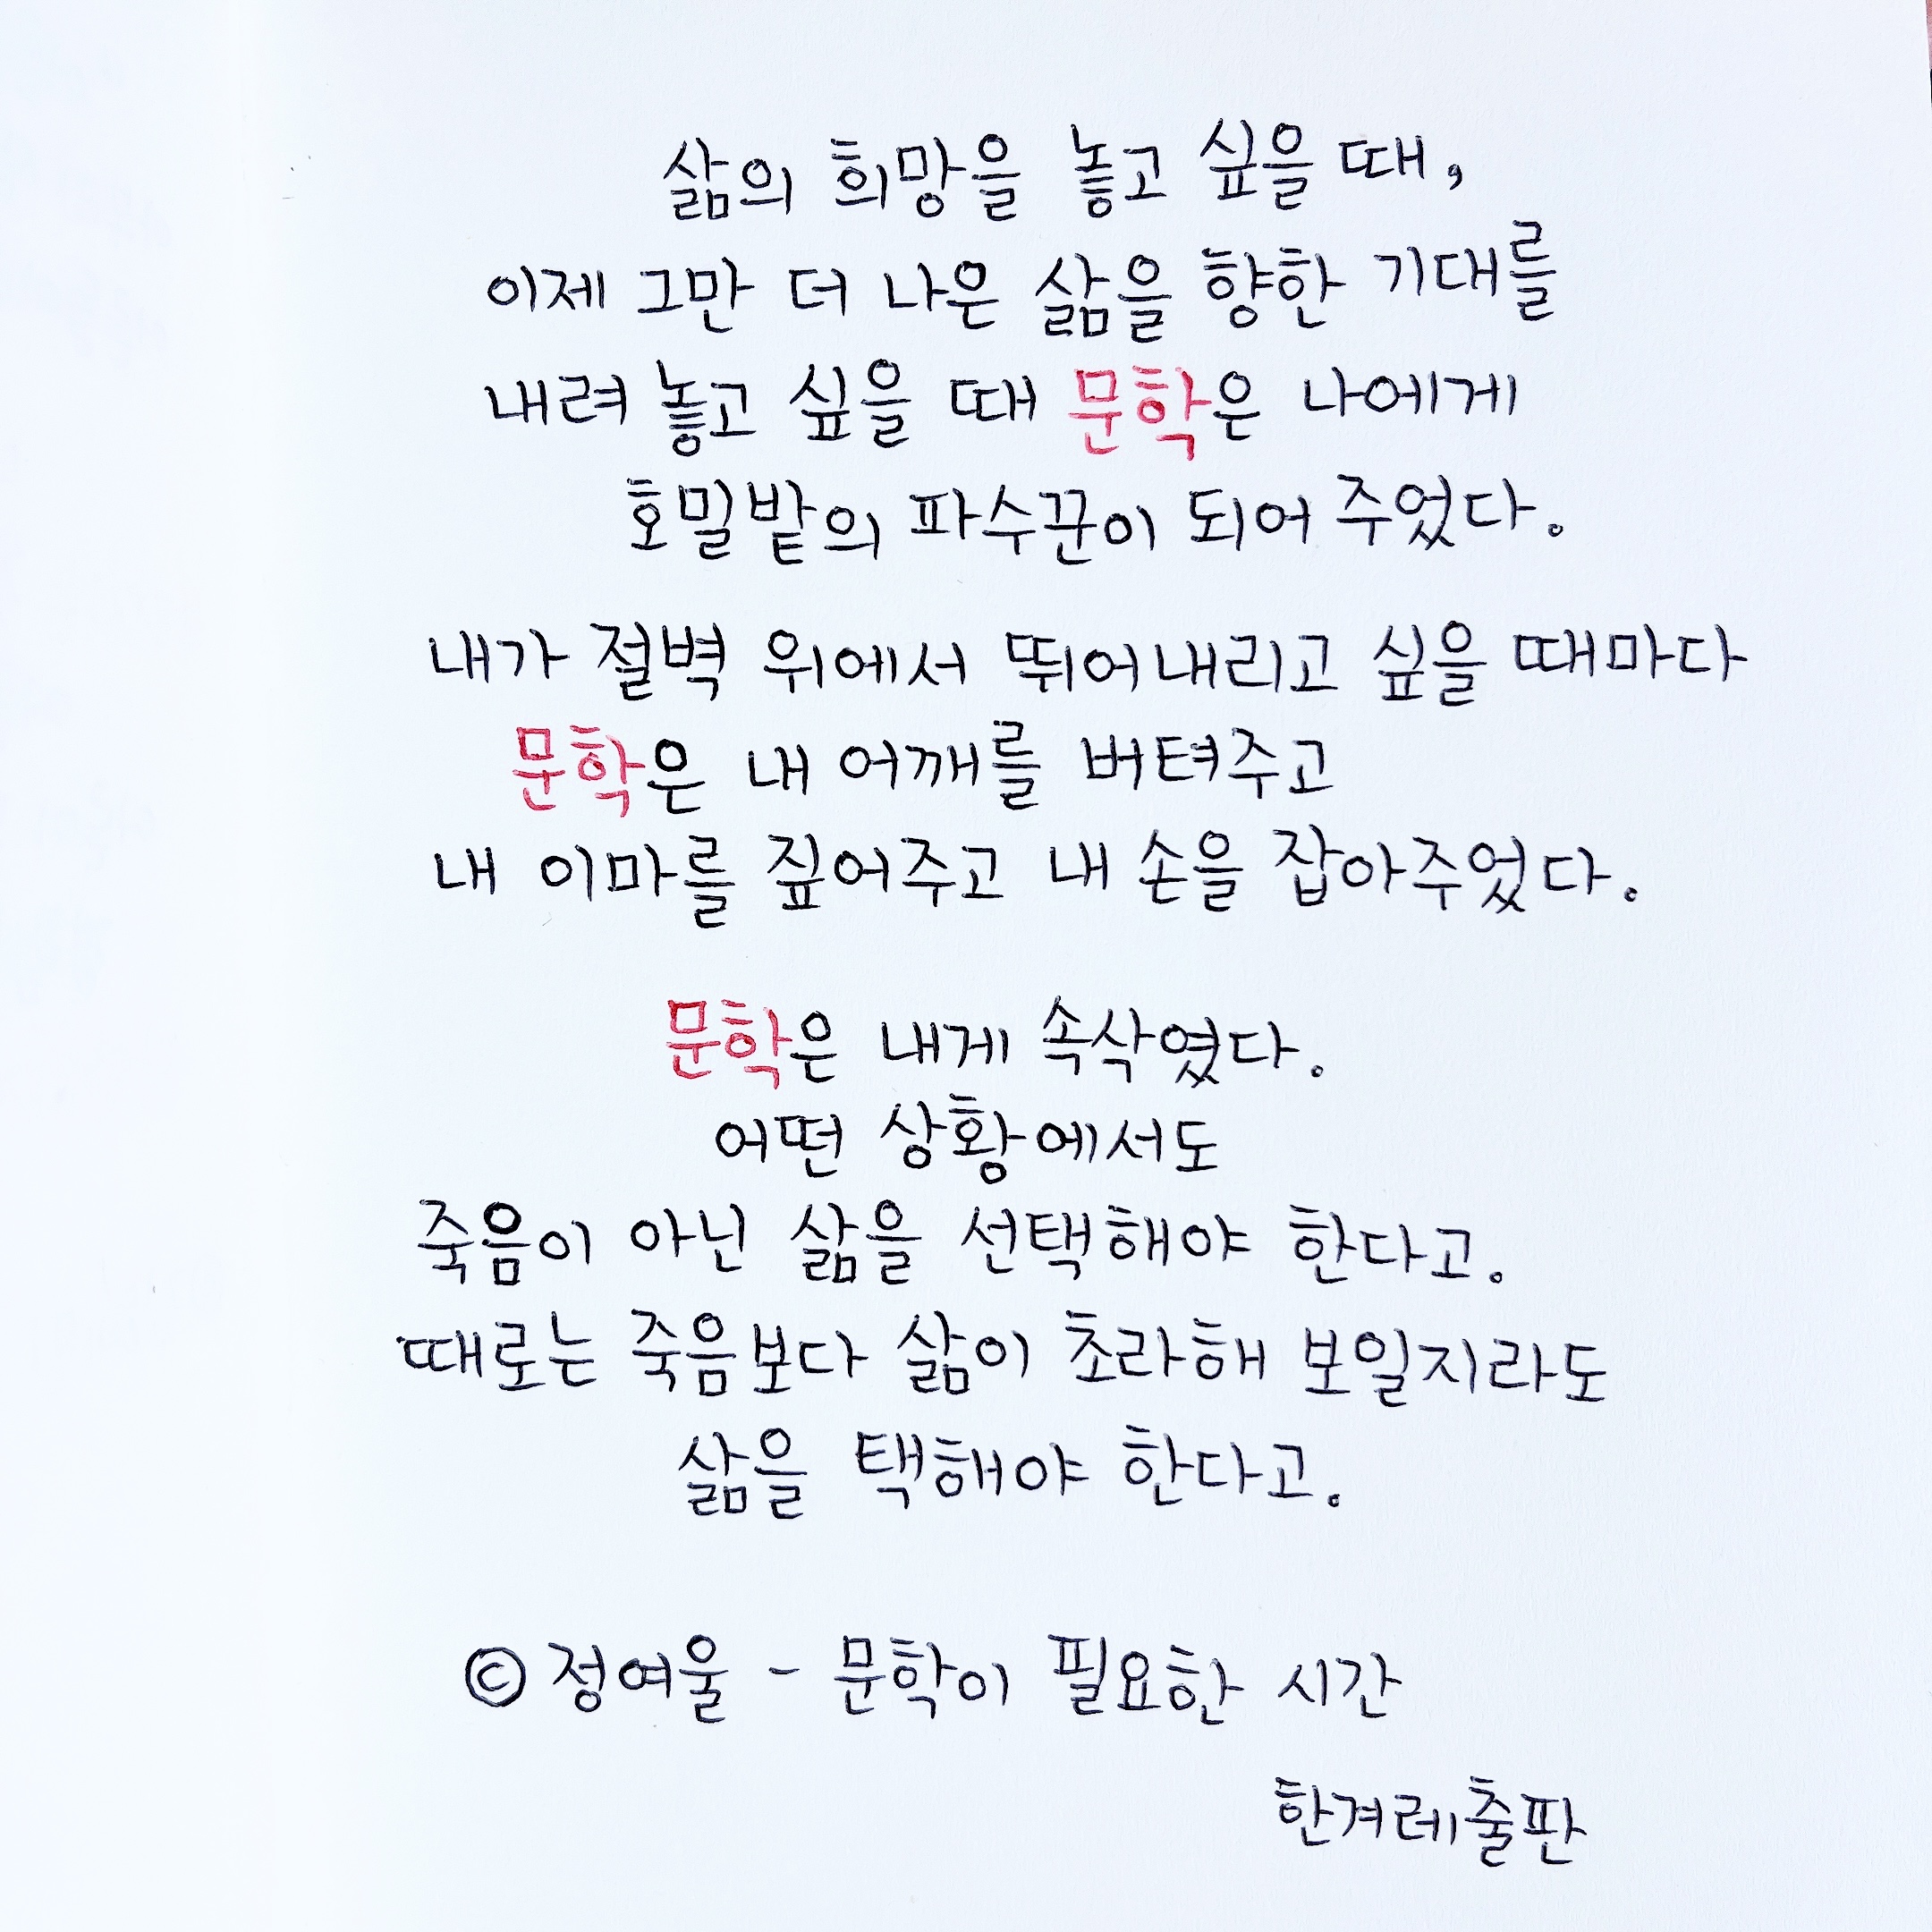 삶의 희망을 놓고 싶을 때,
이제 그만 더 나은 삶을 향한 기대를
내려 놓고 싶을 때 문학은 나에게
호밀밭의 파수꾼이 되어 주었다.
내가 절벽 위에서 뛰어내리고 싶을 때마다
문학은 내 어깨를 버텨주고
내 이마를 짚어주고 내 손을 잡아주었다.
문학은 내게 속삭였다.
어떤 상황에서도
죽음이 아닌 삶을 선택해야 한다고.
때로는 죽음보다 삶이 초라해 보일지라도
삶을 택해야 한다고.
© 정여울 - 문학이 필요한 시간
한겨레출판